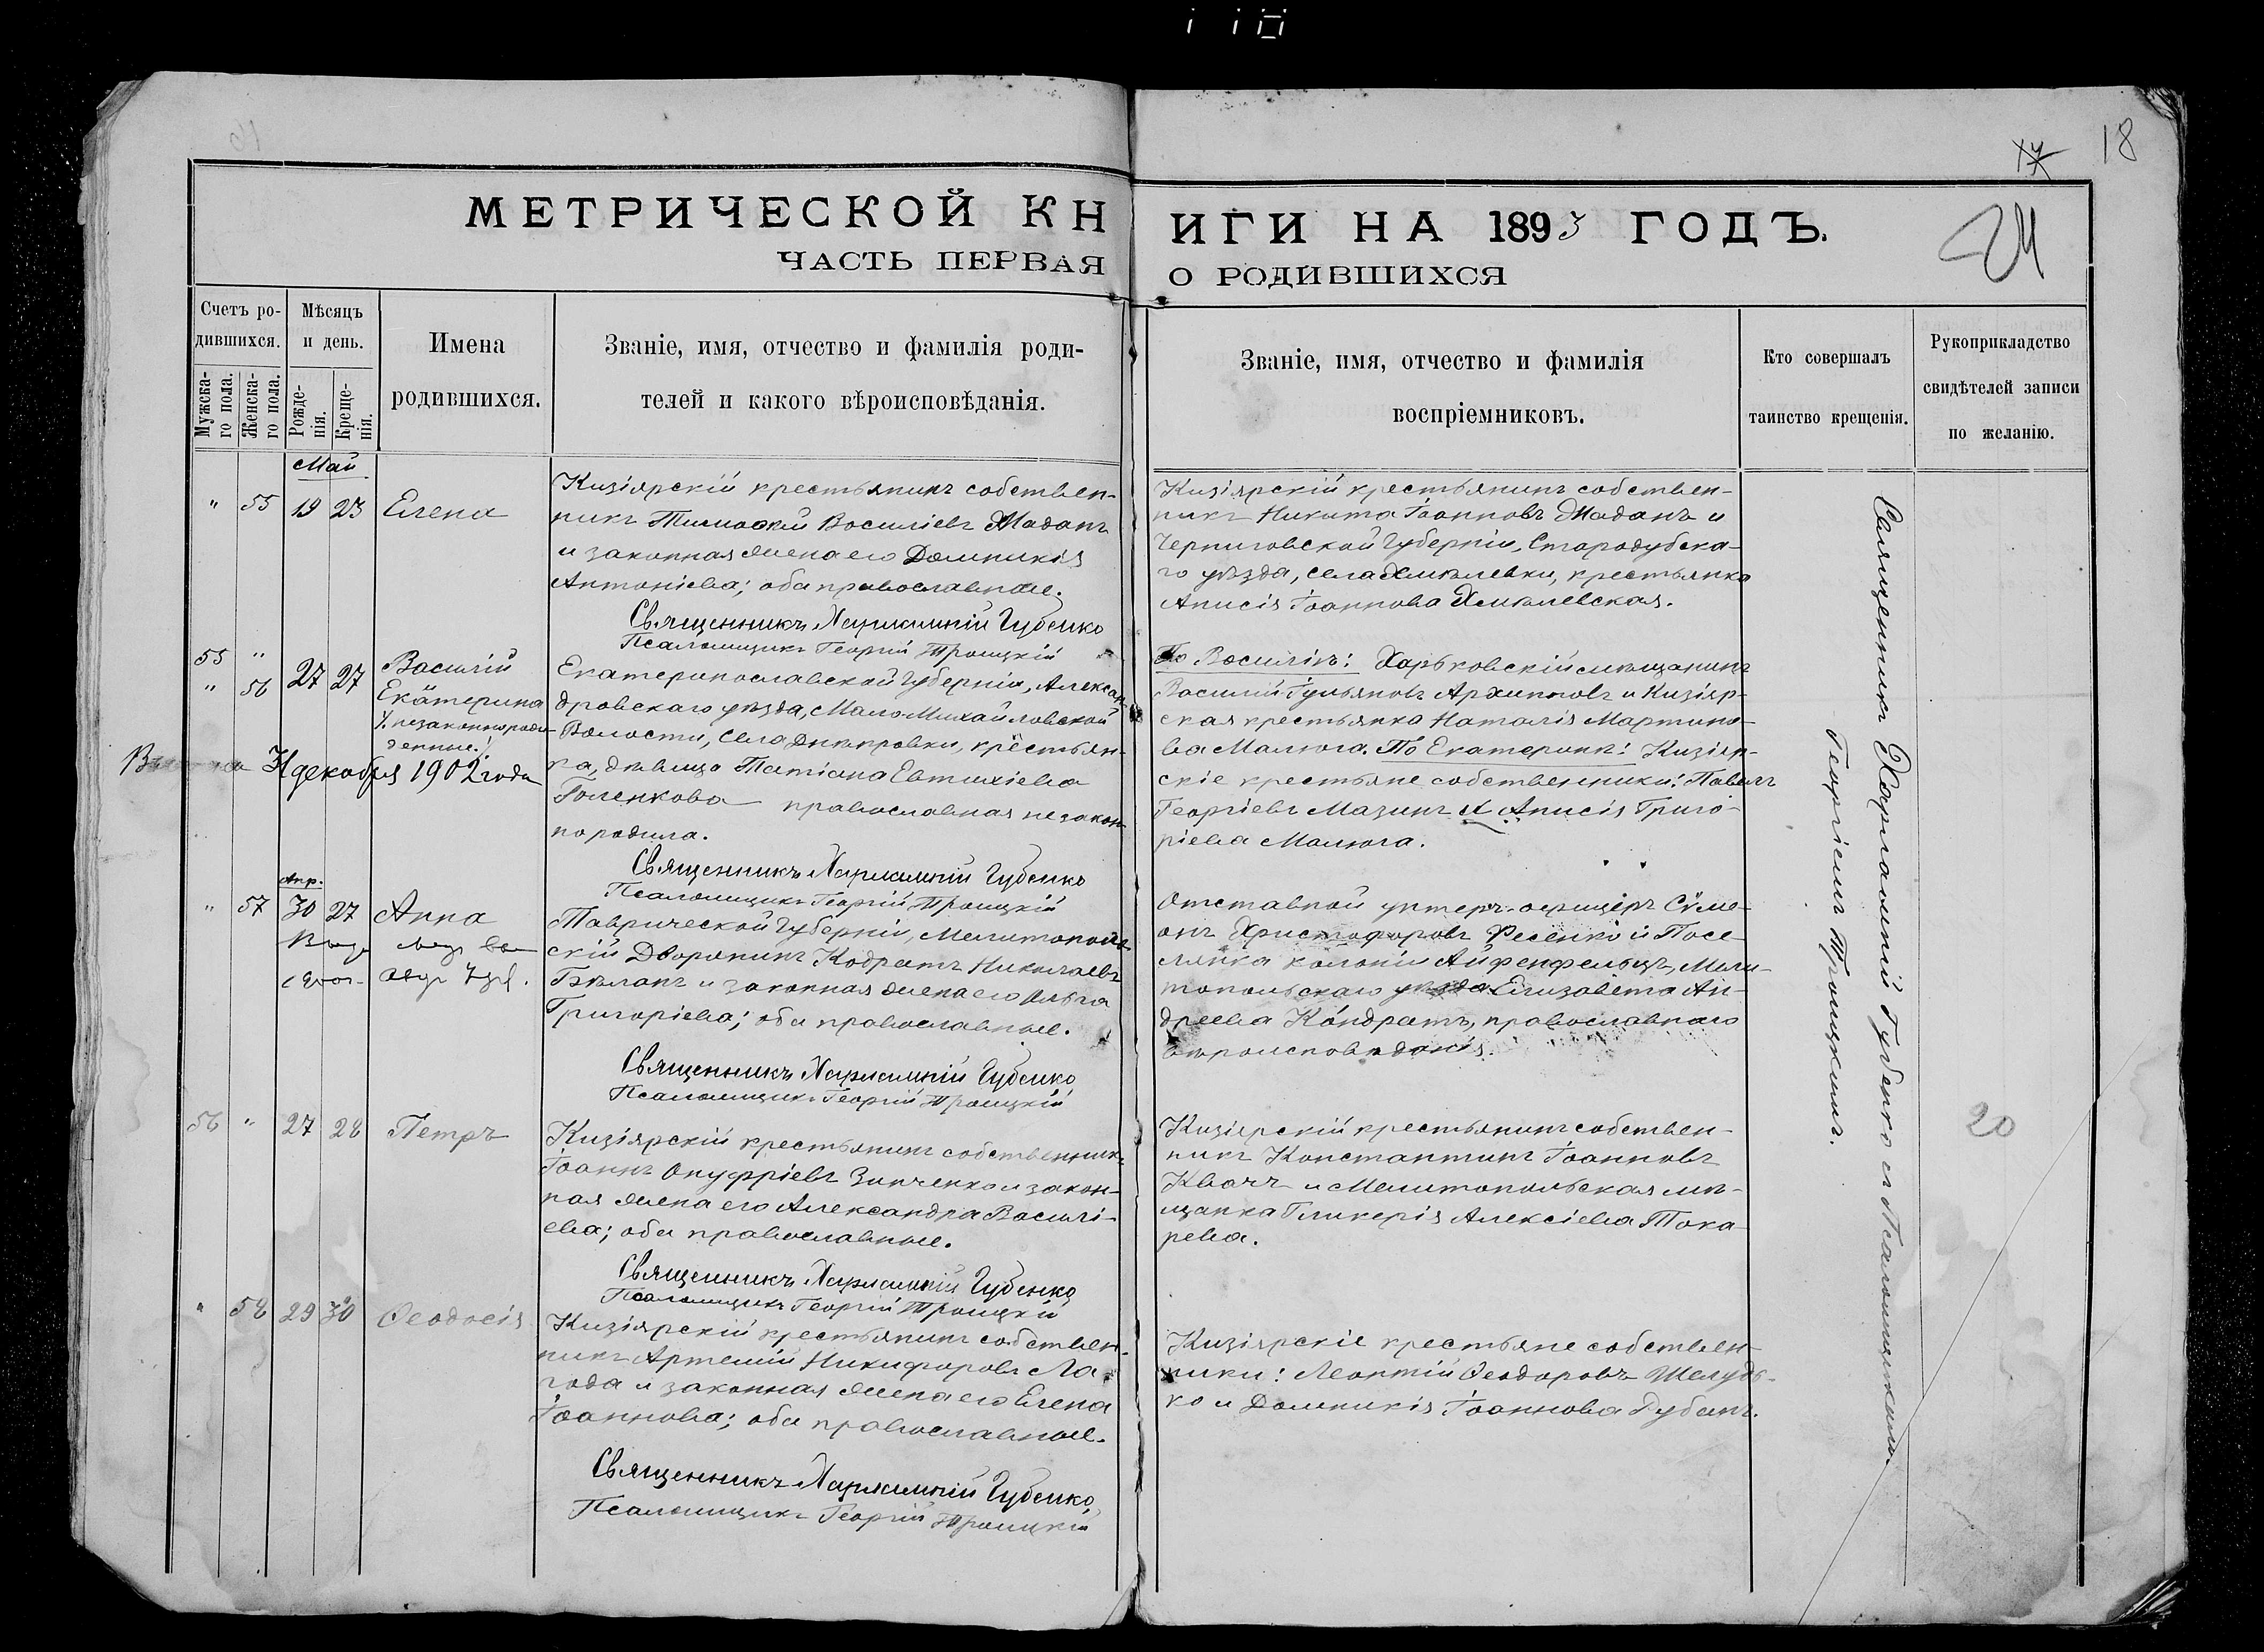 18
24
МЕТРИЧЕСКОЙ КНИГИ НА 1893 ГОДЪ.
ЧАСТЬ ПЕРВАЯ О РОДИВШИХСЯ
Счетъ ро-
дившихся.
Мужска-
го пола.
Женска-
го пола.
Мѣсяцъ
и день.
Рожде-
нія.
Креще-
нія.
Имена
родившихся.
Званіе, имя, отчество и фамилія роди-
телей и какого вѣроисповѣданія.
Званіе, имя, отчество и фамилія
воспріемниковъ.
Кто совершалъ
таинство крещенія.
Рукоприкладство
свидѣтелей записи
по желанію.
Май
" 55 19 23 Елена
Кизіярскій крестьянинъ собствен-
никъ Тимоѳей Василіевъ Маданъ
и законная жена его Домникія
Антоніева; оба православные.
Священникъ Харлампій Губенко
Псаломщикъ Георгій Троицкій
Кизіярскій крестьянинъ собствен-
никъ Никита Іоанновъ Маданъ и
Черниговской Губерніи, Стародубска-
го уѣзда, села Хмѣлевки, крестьянка
Анисія Іоаннова Хмѣлевская.
55 "
" 56
27 27
Василій
Екатерина
незаконнорож-
денные.
31 декабря 1902 года
Екатеринославской Губерніи, Алексан-
дровскаго уѣзда, Мало Михайловской
Волости, села Днѣпровки, крестьян-
ка, дѣвица Татіана Евтихіева
Голенкова православная незакон-
но родила.
Священникъ Харлампій Губенко
Псаломщикъ Георгій Троицкій
По Василіѣ: Харьковскій мѣщанинъ
Василій Іульяновъ Архиповъ и Кизіяр-
ская крестьянка Наталія Мартино-
ва Малюга. По Екатеринѣ: Кизіяр-
скіе крестьяне собственники: Павелъ
Георгіевъ Мазинъ и Анисія Григо-
ріева Малюга.
Апр.
" 57 30 27 Анна
Таврической Губерніи, Мелитополь-
скій Дворянинъ Кодратъ Николаевъ
Бѣланъ и законная жена его Ольга
Григоріева; оба православные.
Священникъ Харлампій Губенко
Псаломщикъ Георгій Троицкій
Отставной унтеръ-офицеръ Сѵме-
онъ Христофоровъ Фесенко и Посе-
лянка колоніи Айфенфельдъ, Мели-
топольскаго уѣзда Елизавета Ан-
дреева Кондратъ, православнаго
вѣроисповѣданія.
56 " 27 28 Петръ
Кизіярскій крестьянинъ собственникъ
Іоаннъ Онуфріевъ Зинченко и закон-
ная жена его Александра Василі-
ева; оба православные.
Священникъ Харлампій Губенко
Псаломщикъ Георгій Троицкій
Кизіярскій крестьянинъ собствен-
никъ Константинъ Іоанновъ
Квачъ и Мелитопольская мѣ-
щанка Гликерія Алексіева Тока-
рева.
20
" 58 29 30 Ѳеодосія
Кизіярскій крестьянинъ собствен-
никъ Артемій Никифоровъ Ла-
года и законная жена его Елена
Іоаннова; оба православные.
Священникъ Харлампій Губенко
Псаломщикъ Георгій Троицкій
Кизіярскіе крестьяне собствен-
ники: Леонтій Ѳеодоровъ Шелудь-
ко и Домникія Іоаннова Дубина.
Священникъ Харлампій Губенко съ Псаломщикомъ
Георгіемъ Троицкимъ.